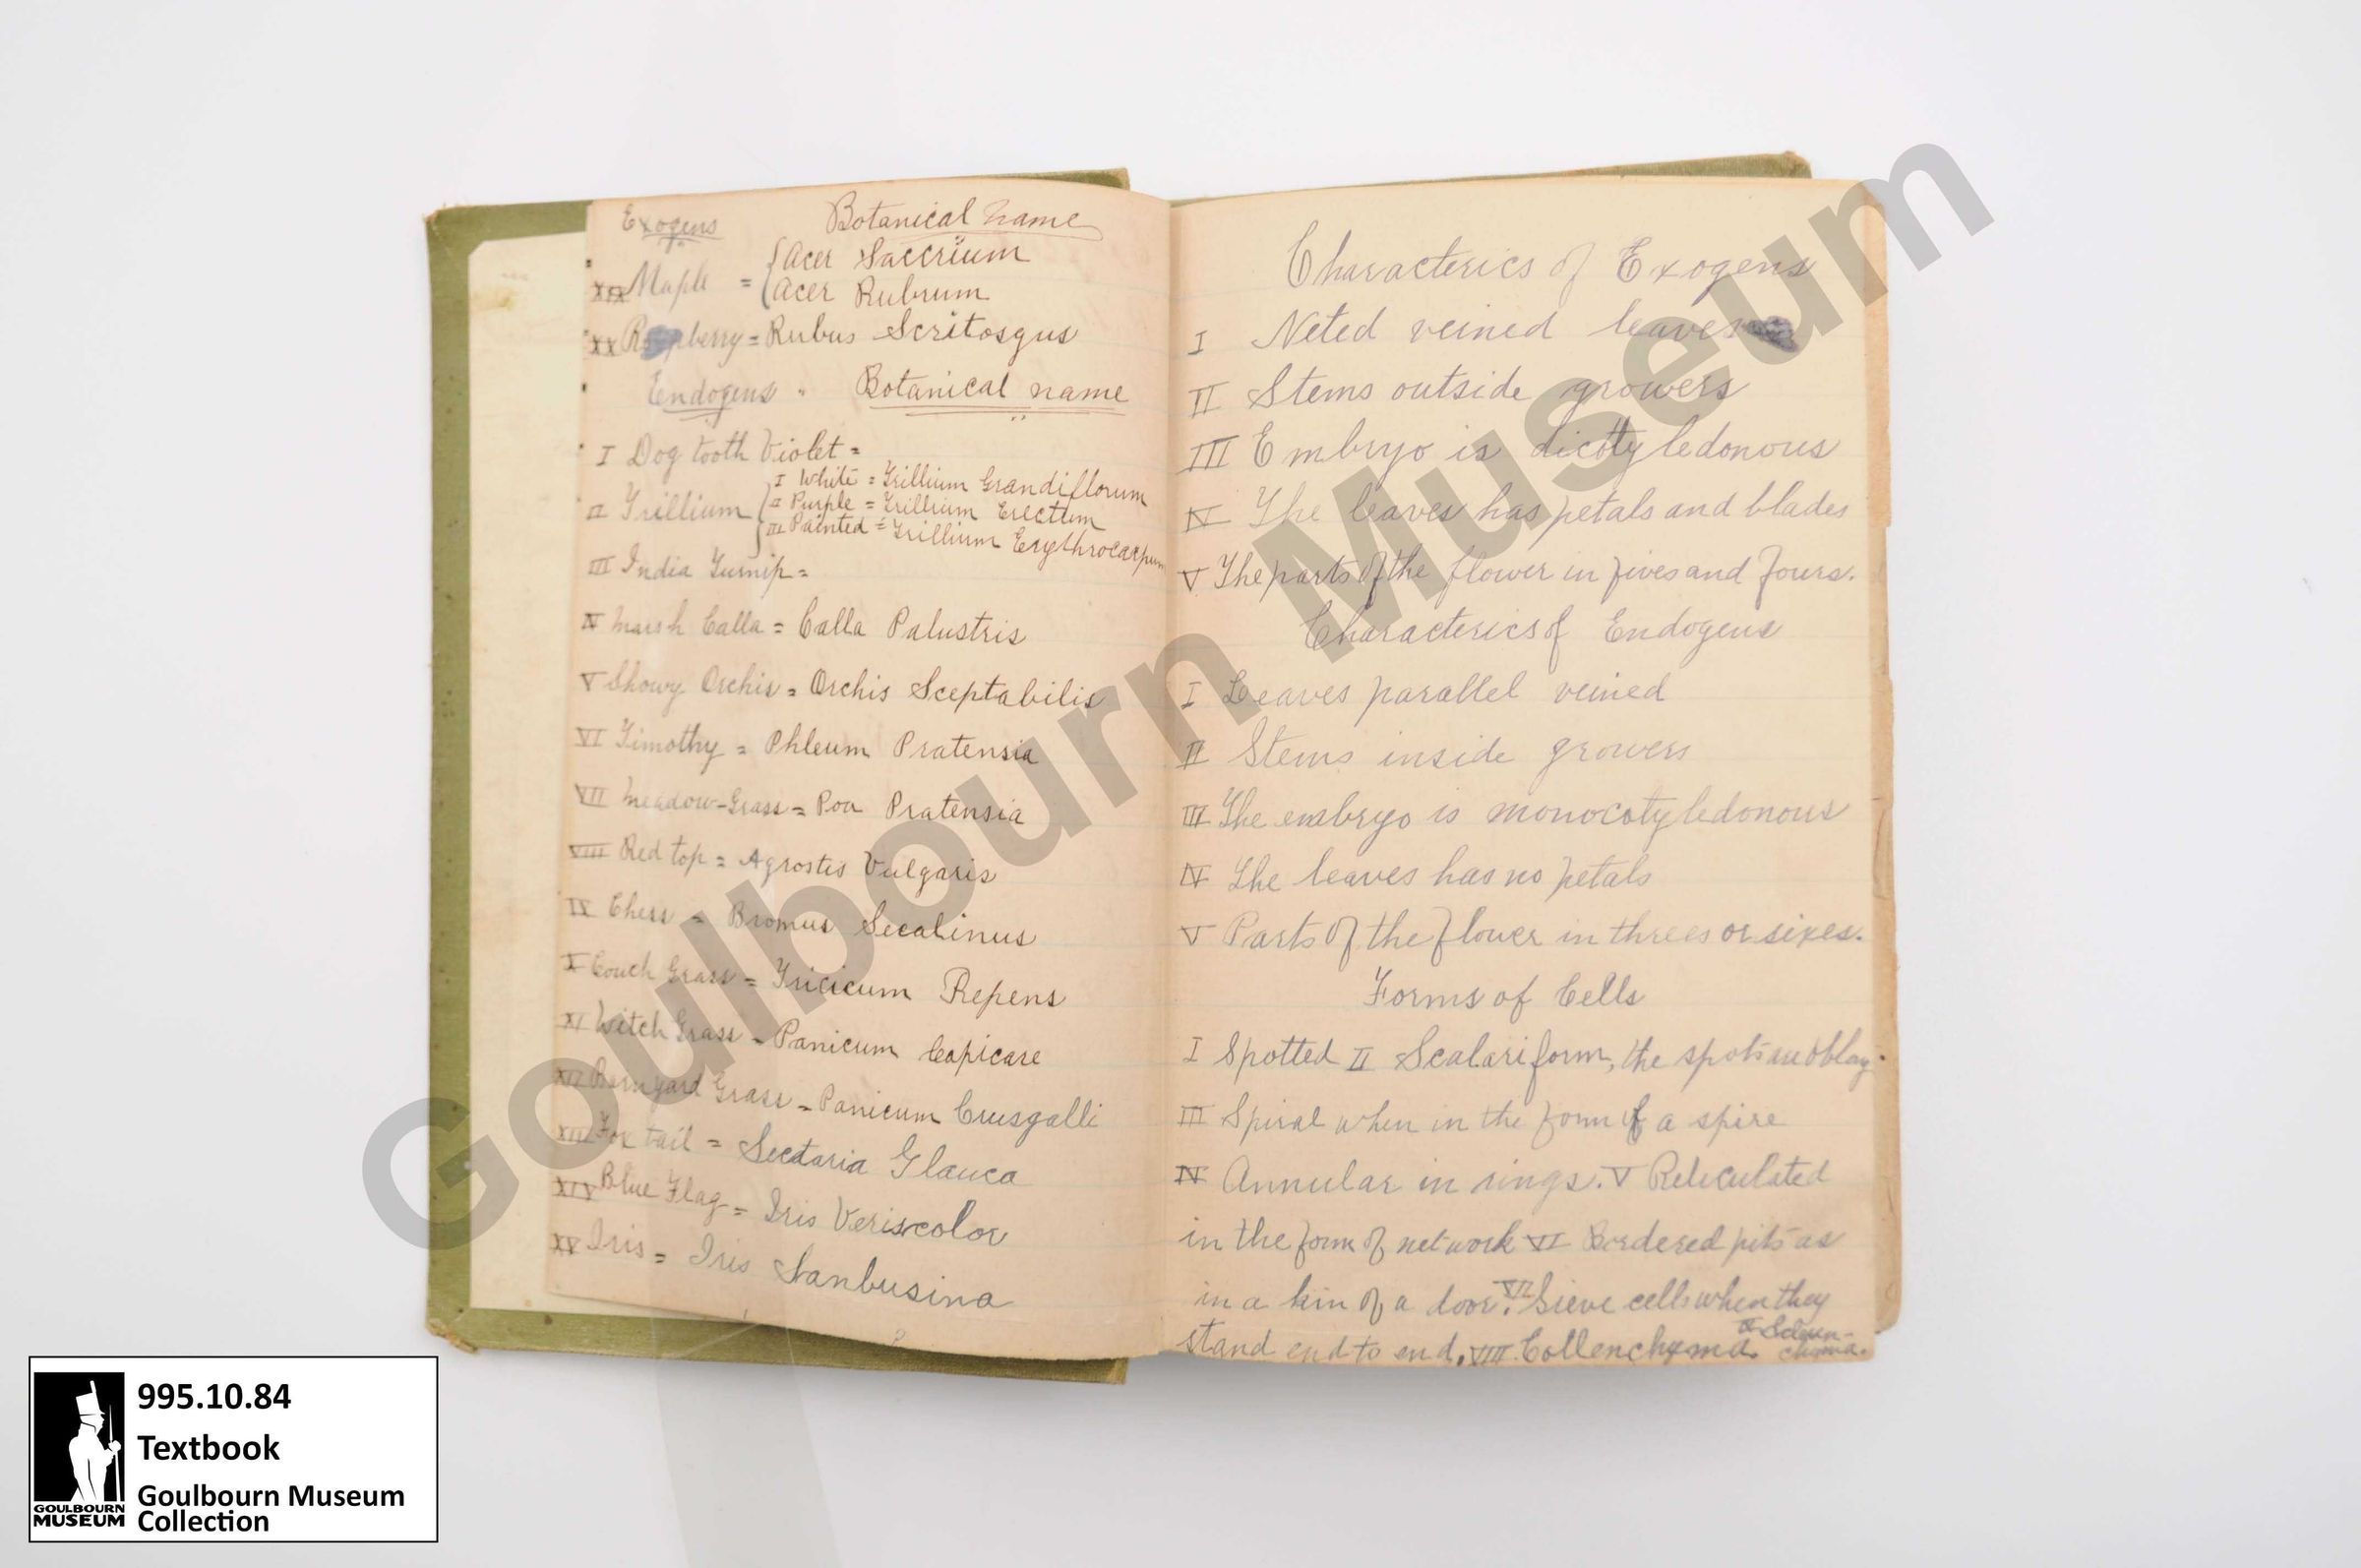 Exogens Botanical name
XIX Maple = { Acer Saccrium
Acer Rubrum
XX Raspberry = Rubus Scritosgus
Endogens " Botanical name
I Dog tooth Violet =
II Trillium { I White = Trillium Grandiflorum
II Purple = Trillium Erectum
III Painted = Trillium Erythrocarpum
III India Turnip =
IV Marsh Calla = Calla Palustris
V Showy Orchis = Orchis Sceptabilis
VI Timothy = Phleum Pratensia
VII Meadow-Grass = Poa Pratensia
VIII Red top = Agrostis Vulgaris
IX Chess = Bromus Secalinus
X Couch Grass = Tricicum Repens
XI Witch Grass = Panicum Capicare
XII Barnyard Grass = Panicum Crusgalli
XIII Fox tail = Sectaria Glauca
XIV Blue Flag = Iris Veriscolor
XV Iris = Iris Sanbusina
Characterics of Exogens
I Neted veined leaves
II Stems outside growers
III Embryo is dicotyledonous
IV The leaves has petals and blades
V The parts of the flower in fives and fours.
Characterics of Endogens
I Leaves parallel veined
II Stems inside growers
III The embryo is monocotyledonous
IV The leaves has no petals
V Parts of the flower in threes or sixes.
Forms of Cells
I Spotted II Scalariform, the spots are oblong.
III Spiral when in the form of a spire
IV Annular in rings. V Reliculated
in the form of network VI Bordered pits as
in a kin of a door. VII Sieve cells when they
stand end to end. VIII Collenchyma. IX Scleren-
chyma.
Goulbourn Museum
995.10.84
Textbook
Goulbourn Museum
Collection
GOULBOURN
MUSEUM